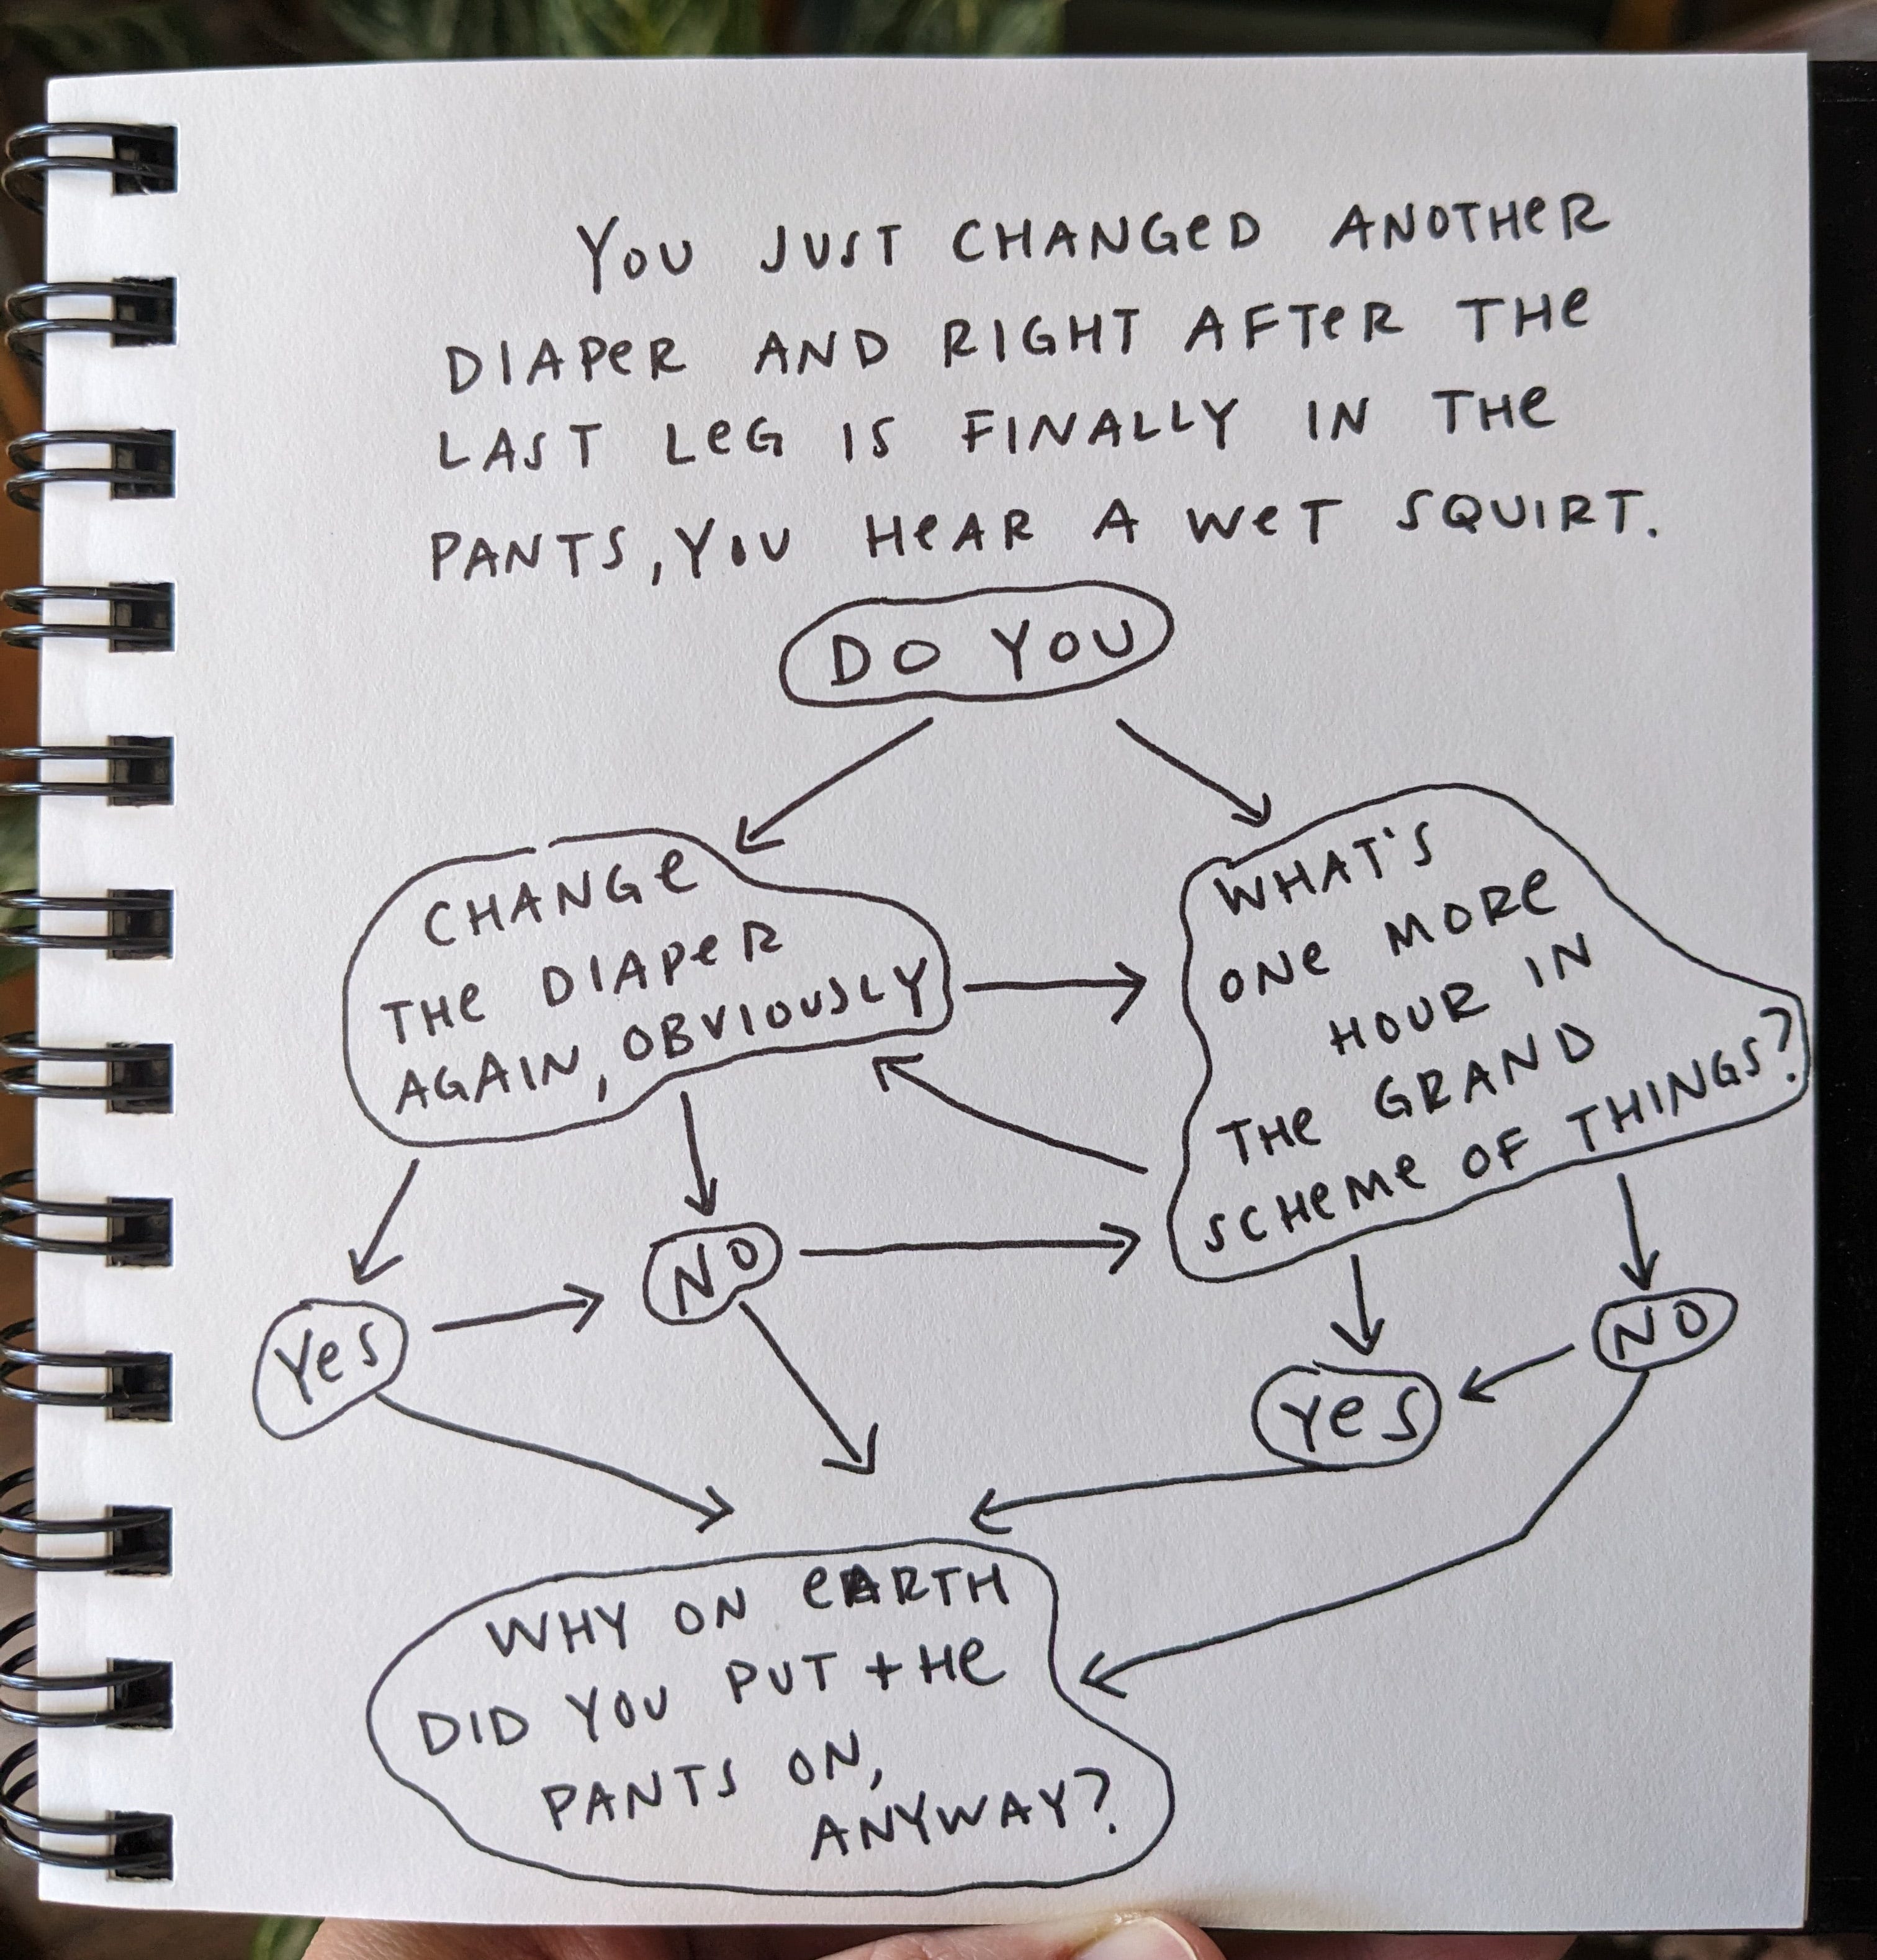 You JUST CHANGeD ANOTHeR
DIAPeR AND RIGHT AFTeR THe
LAST LeG IS FINALLY IN THe
PANTS, YOU HeAR A WeT SQUIRT.
DO YOU
CHANGe
THe DIAPeR
AGAIN, OBVIOUSLY
WHAT'S
ONe MORe
HOUR IN
THe GRAND
SCHeMe OF THINGS?
NO
Yes
NO
Yes
WHY ON eARTH
DID YOU PUT THe
PANTS ON,
ANYWAY?